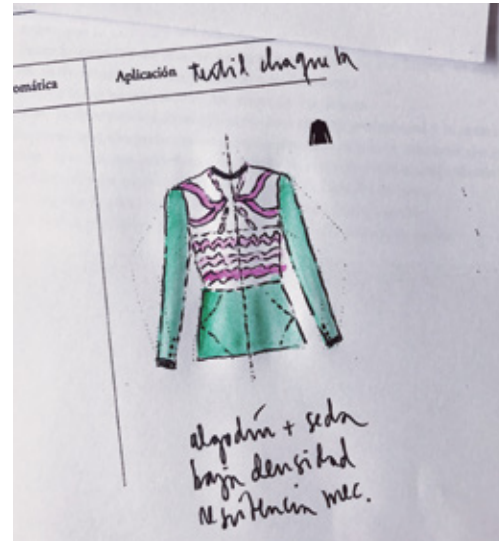 omática
Aplicación textil chaqueta
algodón + seda
baja densidad
resistencia mec.